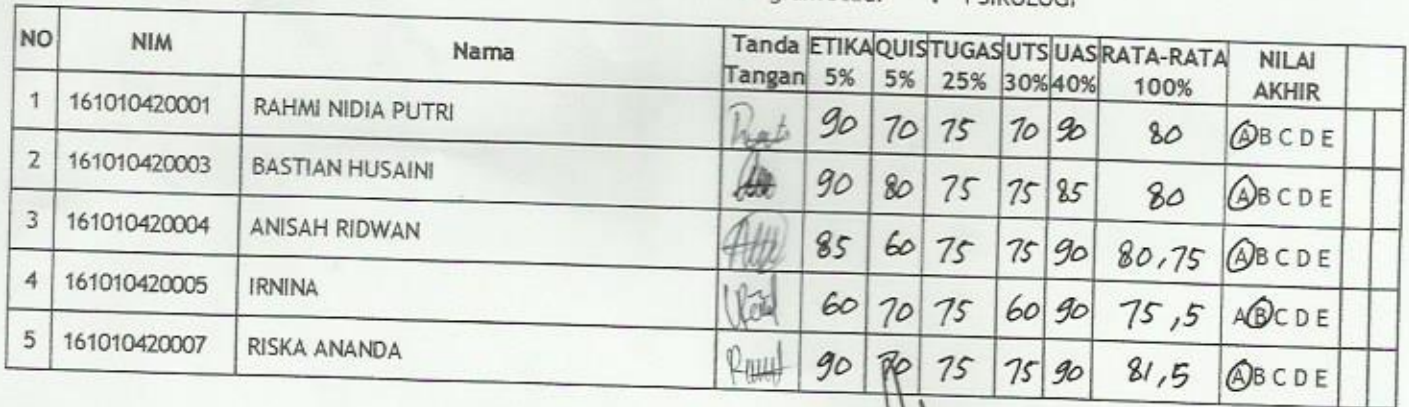 PSIKOLOGI
NO NIM Nama Tanda Tangan ETIKA 5% QUIS 5% TUGAS 25% UTS 30% UAS 40% RATA-RATA 100% NILAI AKHIR
1 161010420001 RAHMI NIDIA PUTRI 90 70 75 70 90 80 A B C D E
2 161010420003 BASTIAN HUSAINI 90 80 75 75 85 80 A B C D E
3 161010420004 ANISAH RIDWAN 85 60 75 75 90 80,75 A B C D E
4 161010420005 IRNINA 60 70 75 60 90 75,5 A B C D E
5 161010420007 RISKA ANANDA 90 70 75 75 90 81,5 A B C D E